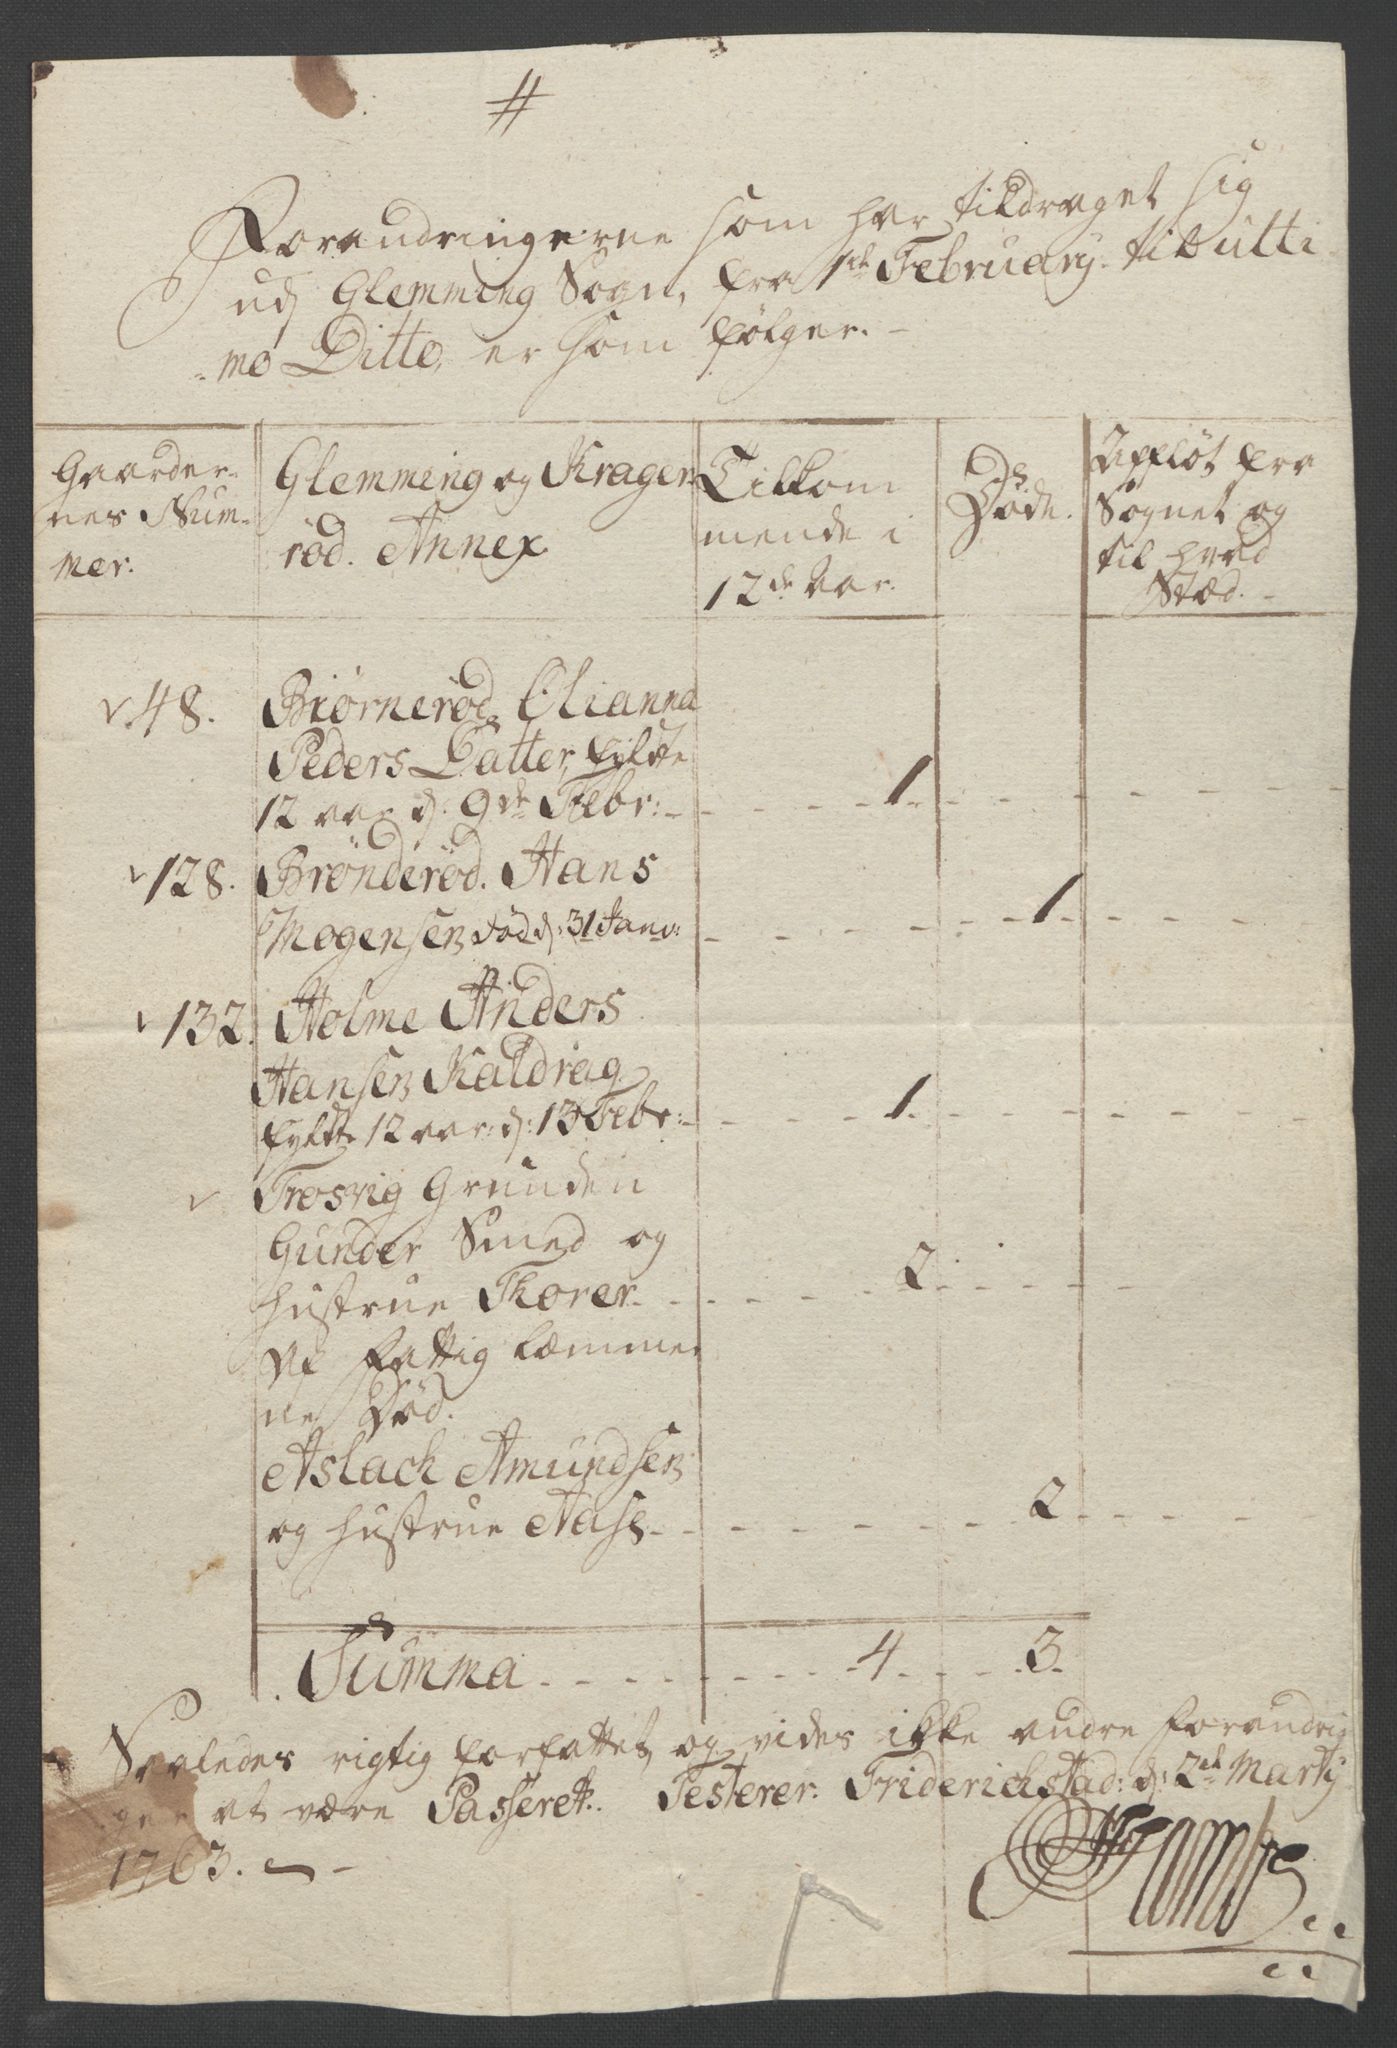 #
Forandringerne som har tildraget sig
udj Glemming Sogn, fra 1de February til ulti
-mo Ditto, er som følger. -
Gaarder-
nes Num-
mer.
Glemming og Krager-
röd. Annex
Tilkom
mende i
12de Aar.
Döde.
Afflöt fra
Sognet og
til hvad
Stæd. -
48. Biørneröd, Olianna
Peders Datter, fyldte
12 aar d: 9de Febr: - 1
128. Brönderöd. Hans
Mogensen död d: 31 Janv: 1
132. Holme Anders
Hansen Kaldrag
fyldte 12 aar: d: 13 Febr: 1
Trosvig Grunden
Gunder Smed og
hustrue Thorer. 2
Af Fattig Læmmer
ne Död.
Aslach Amundsen
og hustrue Aase 2
Summa 4 3
Saaledes rigtig forfattet, og vides ikke andre Forandrin
ger at være Passeret. Testerer. Friderichstad: d: 2de Martij
1763.